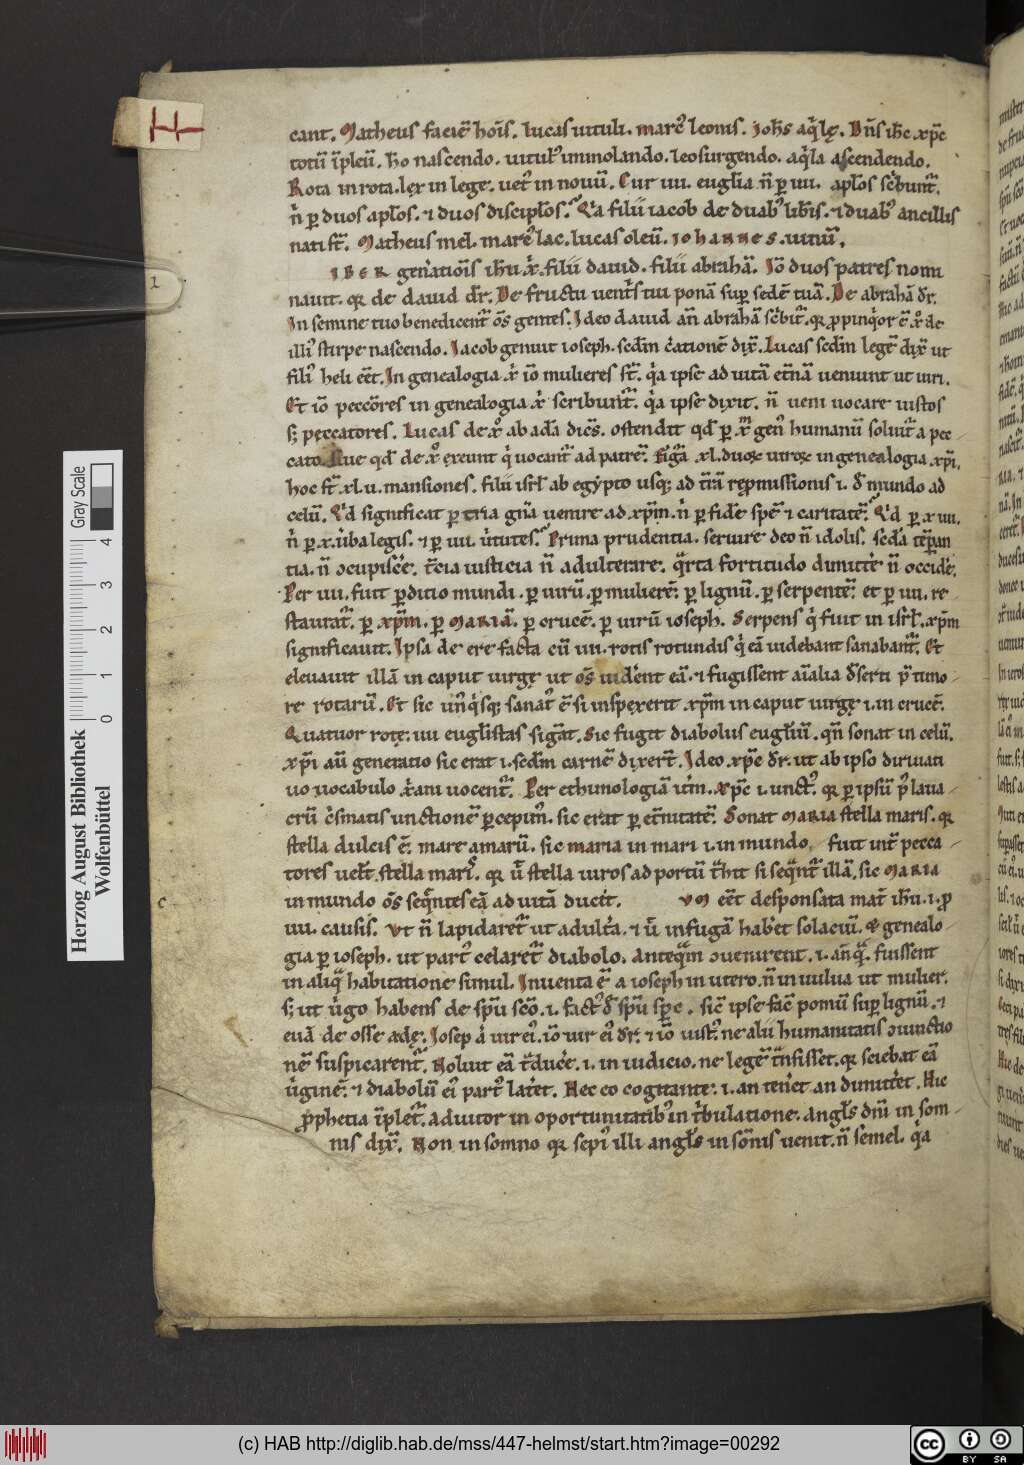 H
cant. Matheus facie᷑ hoı̄s. lucas uituli. marc᷒ leonis. Joh̄s aq̇lę. Dn̄s ih̄c xp̄c
totū ı̄pleū. hō nascendo. uitul᷒ immolando. leo surgendo. aq̇la ascendendo.
Rota in rota. lex in lege. uet᷒ in nouū. Cur IIII. eugl̄ia n̄ ꝑ IIII. apl̄os sc̄buntᷣ.
n̄ ꝑ duos apl̄os. ⁊ duos discipl̄os. Q̇a filii iacob de duab᷒ lib̄is. ⁊ duab᷒ ancillis
nati st̄. Matheus mel. marc᷒ lac. lucas oleū. Johannes. uinū.
IBER gen̄atioı̄s ih̄u x̄. filii dauid. filii abrahā. Iō duos patres nomi
nauit. qꝛ de dauid dr̄. De fructu uent̄s tui ponā sup̄ sedē tuā. De abrahā dr̄.
In semine tuo benedicentᷣ oı̄s gentes. Ideo dauid an̄ abrahā sc̄bitᷣ. qꝛ ꝓpinq̇or ē x̊ de
illi᷒ stirpe nascendo. Iacob genuit ioseph. scd̄m c̄ationē dix̄. Lucas scd̄m legē dix̄ ut
fili᷒ heli eēt. In genealogia x̄ iō mulieres st̄. q̇a ipse ad uitā et̄nā ueniunt ut uiri.
Et iō peccōres in genealogia x̄ scribuntᷣ. q̇a ipse dixit. n̄ ueni uocare iustos
s; peccatores. Lucas de x̊ ab adā dic̄s. ostendit qd̄ ꝑ x̄m gen᷒ humanū soluitᷣ a pec
cato. Siue qd̄ de x̊ exeunt q̇ uocantᷣ ad patrē. Figᷓa xl. duoꝝ uiroꝝ in genealogia xp̄i.
hoc st̄ xl.ii. mansiones. filii isrl̄ ab egypto usq; ad t̄rā rep̄missionis .i. de mundo ad
celū. Q̇d significat ꝑ tria gn̄a uenire ad xp̄m. n̄ ꝑ fidē spē ⁊ caritatē. Q̇d ꝑ x IIII.
n̄ ꝑ .x. ūba legis. ⁊ ꝑ IIII. ūtutes. Prima prudentia. seruire deo n̄ idolis. scd̄a tēꝑan
tia. n̄ ɔcupisc̄e. t̄cia iusticia n̄ adulterare. qᷓrta fortitudo dimitt̄e n̄ occid̄e.
Per IIII. fuit ꝑditio mundi. ꝑ uirū. ꝑ mulierē. ꝑ lignū. ꝑ serpentē. et ꝑ IIII. re
stauratᷣ. ꝑ xp̄m. ꝑ MARIĀ. ꝑ crucē. ꝑ uirū ioseph. Serpens q̇ fuit in isrl̄. xp̄m
significauit. Ipsa de ere facta cū IIII. rotis rotundis q̇ eā uidebant sanabantᷣ. Et
eleuauit illā in caput uirgę ut oı̄s uid̄ent eā. ⁊ fugissent aı̄alia d̄serti p̄ timo
re rotarū. Et sic un᷒q̇sq; sanat᷒ ē si inspexerit xp̄m in caput uirgę .i. in crucē.
Quatuor rotę. IIII eugl̄istas sigᷓt. Sic fugit diabolus eugl̄iū. qn̄ sonat in celū.
xp̄i aū generatio sic erat .i. scd̄m carnē dixert̄. Ideo xp̄c dr̄. ut ab ipso diriuati
uo uocabulo x̄ani uocentᷣ. Per ethimologiā it̄m. xp̄c .i. unct᷒. qꝛ ꝑ ipsū p᷒ laua
crū c̄smatis unctionē ꝑcepim᷒. sic erat ꝑ et̄nitatē. Sonat MARIA stella maris. qꝛ
stella dulcis ē. mare amarū. sic maria in mari .i. in mundo. fuit int̄ pecca
tores uel᷒t stella mari᷒. qꝛ ū stella uiros ad portū t̄hit si seqᷓntᷣ illā. sic MARIA
in mundo oı̄s seqᷓntes eā ad uitā ducit. VM eēt desponsata mat̄ ih̄u. i. ꝓ
IIII. causis. Vt n̄ lapidaretᷣ ut adult̄a. ⁊ ū in fugā hab̄et solaciū. & genealo
gia ꝑ ioseph. ut part᷒ celaretᷣ diabolo. Anteqᷓm ɔuenirent. i. an̄qᷓ. fuissent
in aliqᷓ habitatione simul. Inuenta ē a ioseph in utero. n̄ in uulua ut mulier.
s; ut ūgo habens de sp̄u sc̄o. i. fact᷒ d̄ sp̄u sp̄c. sic̄ ipse fac̄ pomū sup̄ lignū. ⁊
euā de osse adę. Iosep ȧ uir ei᷒. iō uir ei᷒ dr̄. ⁊ iō iust᷒. ne alii humanitatis ɔiunctio
nē suspicarentᷣ. Noluit eā t̄duc̄e. i. in iudicio. ne legē t̄nsisset. qꝛ sciebat eā
ūginē. ⁊ diabolū ei᷒ part᷒ lat̄et. Hec eo cogitante. i. an ten̄et an dimitt̄et. Hic
ꝓphetia ı̄pletᷣ. adiutor in oportunitatib᷒ in t̄bulatione. angl̄s dn̄i in som
nis dix̄. Non in somno qꝛ sepi᷒ illi angl̄s in sōnis uenit. n̄ semel. q̇a
Herzog August Bibliothek
Wolfenbüttel
Gray Scale
0 1 2 3 4
(c) HAB http://diglib.hab.de/mss/447-helmst/start.htm?image=00292
cc BY SA